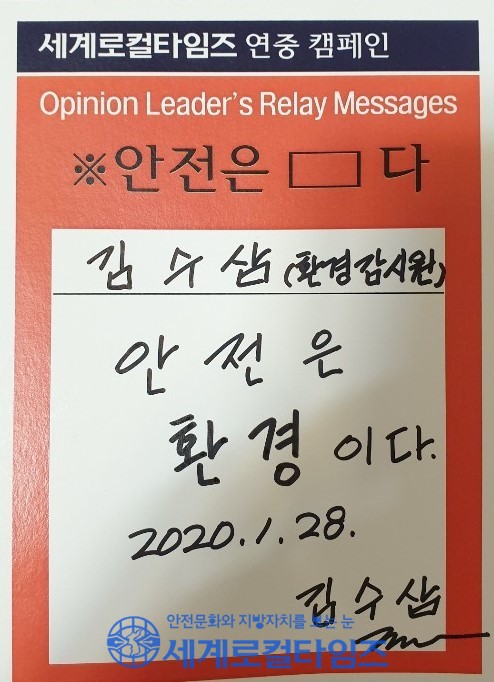 세계로컬타임즈 연중 캠페인
Opinion Leader's Relay Messages
※안전은 □ 다
김수삼 (환경감시원)
안전은
환경이다.
2020.1.28.
김수삼
안전문화와 지방자치를 보는 눈
세계로컬타임즈